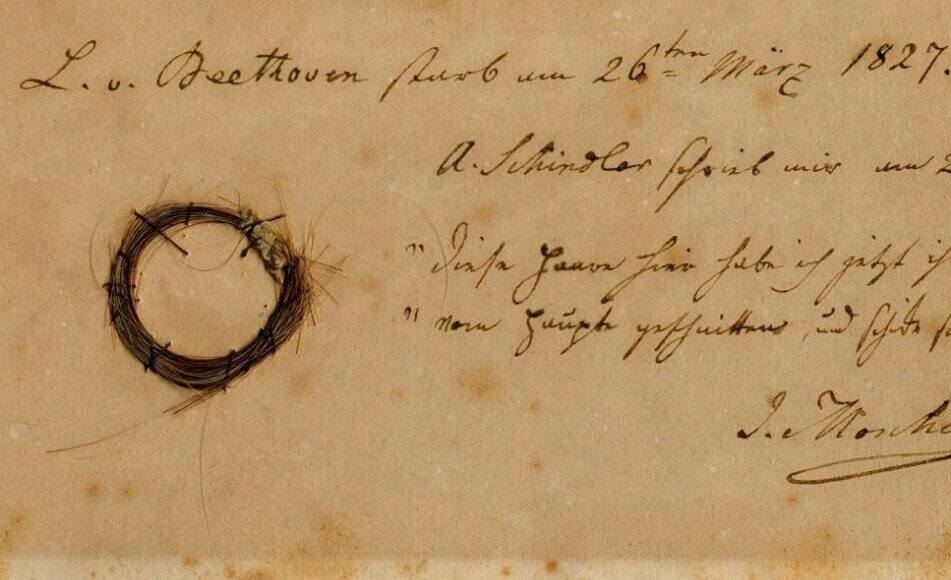 L. v. Beethoven starb am 26ten März 1827.
A. Schindler schrieb mir am 2
" Diese Haare hier habe ich jetzt ih
" vom Haupte geschnitten, und schicke
I. Mosche